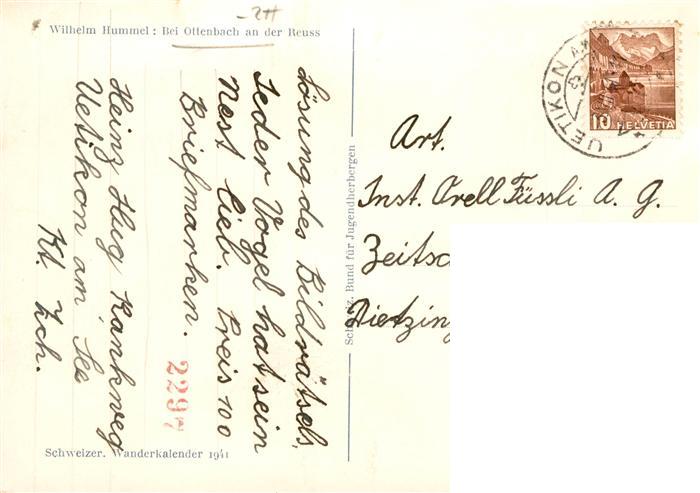 Wilhelm Hummel: Bei Ottenbach an der Reuss
Lösung des Bildrätsels,
Jeder Vogel hat sein
Nest lieb. Preis 100
Briefmarken.
2297
Heinz Hug Rankweg
Uetikon am See
Kt. Zch.
Schweizer. Wanderkalender 1941
Schweiz. Bund für Jugendherbergen
UETIKON
10 HELVETIA
Art.
Inst. Orell Füssli A. G.
Zeitsc
Dietzing